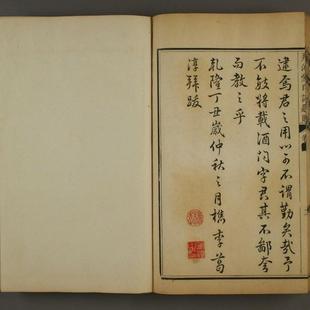 逮焉君之用心可不謂勤矣哉予
不敏將載酒问字君其不鄙夸
而教之乎
乾隆丁丑歲仲秋之月樵李葛
淳拜跋